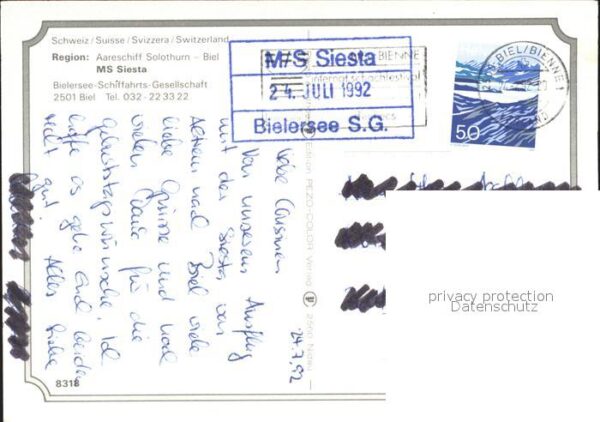 Schweiz / Suisse / Svizzera / Switzerland
Region: Aareschiff Solothurn – Biel
MS Siesta
Bielersee-Schiffahrts-Gesellschaft
2501 Biel Tel. 032-22 33 22
M/S Siesta
24. JULI 1992
Bielersee S.G.
BIENNE
Internat. Schachfestival
BIEL/BIENNE 1
50
24.7.92
Von unserem Ausflug
mit der Siesta von
nach Biel viele
liebe Grüsse und noch
vielen Dank für die
Geburtstagswünsche! Ich
hoffe es geht Euch beiden
gut! Alles Liebe
PEZOLD-COLOR Verlag
privacy protection
Datenschutz
8318